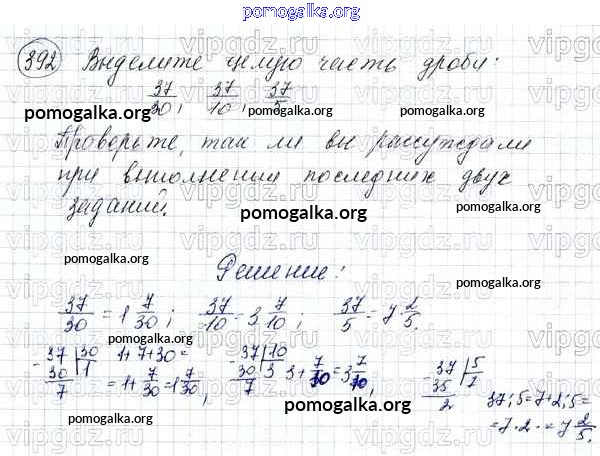 pomogalka.org
392 Выделите целую часть дроби:
37/30; 37/10; 37/5.
pomogalka.org pomogalka.org pomogalka.org
Проверьте, так ли вы рассуждали
при выполнении последних двух
заданий.
pomogalka.org
pomogalka.org
Решение:
37/30 = 1 7/30; 37/10 = 3 7/10; 37/5 = 7 2/5.
- 37 | 30 1+7÷30 = - 37 | 10 3+ 7/10 = 3 7/10, - 37 | 5
30 | 1 = 1+ 7/30 = 1 7/30, 30 | 3 35 | 7
7 7 2 37:5=7+2:5=
=7·2·=7 2/5.
pomogalka.org pomogalka.org
vipgdz.ru